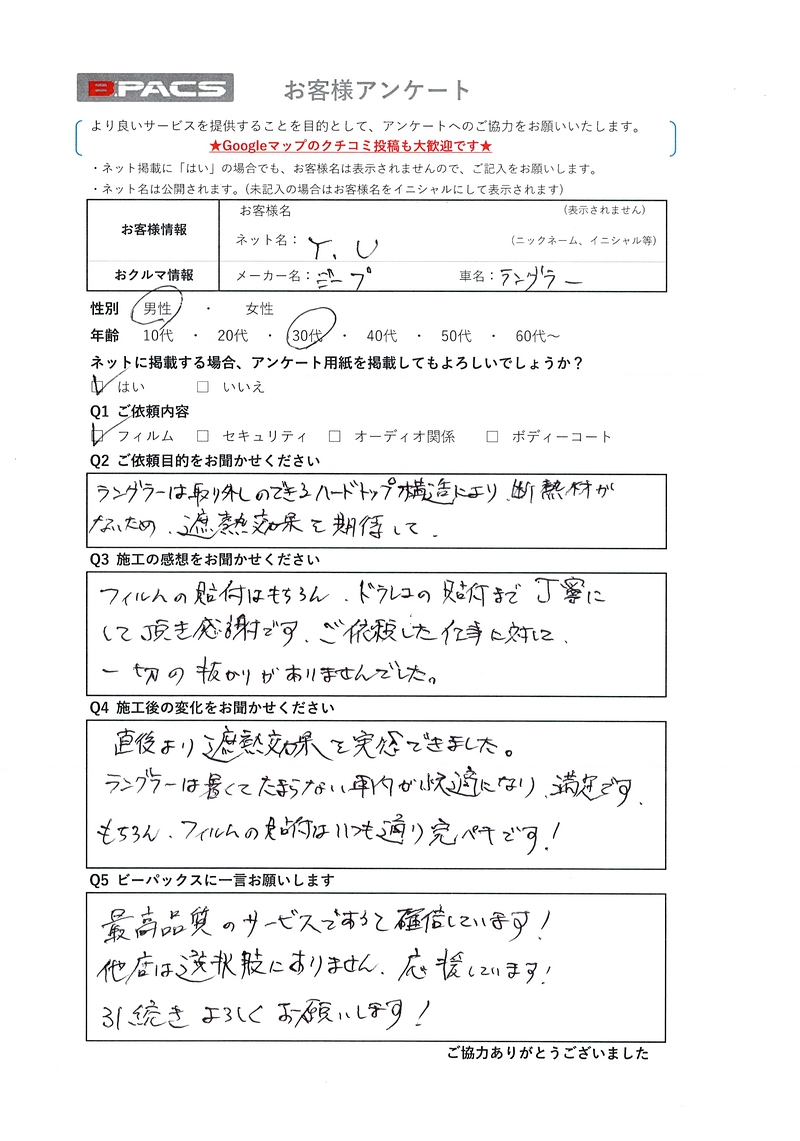 B.PACS お客様アンケート
より良いサービスを提供することを目的として、アンケートへのご協力をお願いいたします。
★Googleマップのクチコミ投稿も大歓迎です★
・ネット掲載に「はい」の場合でも、お客様名は表示されませんので、ご記入をお願いします。
・ネット名は公開されます。(未記入の場合はお客様名をイニシャルにして表示されます)
お客様情報
お客様名 (表示されません)
ネット名： Y. U (ニックネーム、イニシャル等)
おクルマ情報 メーカー名：ジープ 車名：ラングラー
性別 男性 ・ 女性
年齢 10代 ・ 20代 ・ 30代 ・ 40代 ・ 50代 ・ 60代～
ネットに掲載する場合、アンケート用紙を掲載してもよろしいでしょうか？
☑ はい □ いいえ
Q1 ご依頼内容
☑ フィルム □ セキュリティ □ オーディオ関係 □ ボディーコート
Q2 ご依頼目的をお聞かせください
ラングラーは取り外しのできるハードトップ構造により、断熱材が
ないため、遮熱効果を期待して.
Q3 施工の感想をお聞かせください
フィルムの貼付はもちろん、ドラレコの貼付まで丁寧に
して頂き感謝です。ご依頼した仕事に対して、
一切の抜かりがありませんでした。
Q4 施工後の変化をお聞かせください
直後より遮熱効果を実感できました。
ラングラーは暑くてたまらない車内が快適になり、満足です.
もちろん、フィルムの貼付はいつも通り完ペキです！
Q5 ビーパックスに一言お願いします
最高品質のサービスであると確信しています！
他店は選択肢にありません、応援しています！
引続きよろしくお願いします！
ご協力ありがとうございました